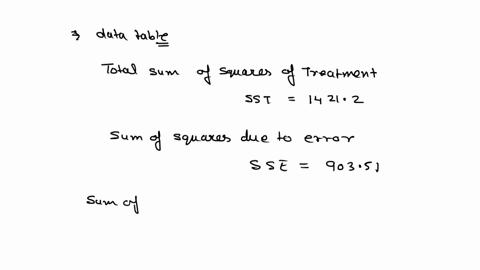 3, data table
Total sum of squares of Treatment
SST = 1421.2
Sum of squares due to error
SSE = 903.51
Sum of